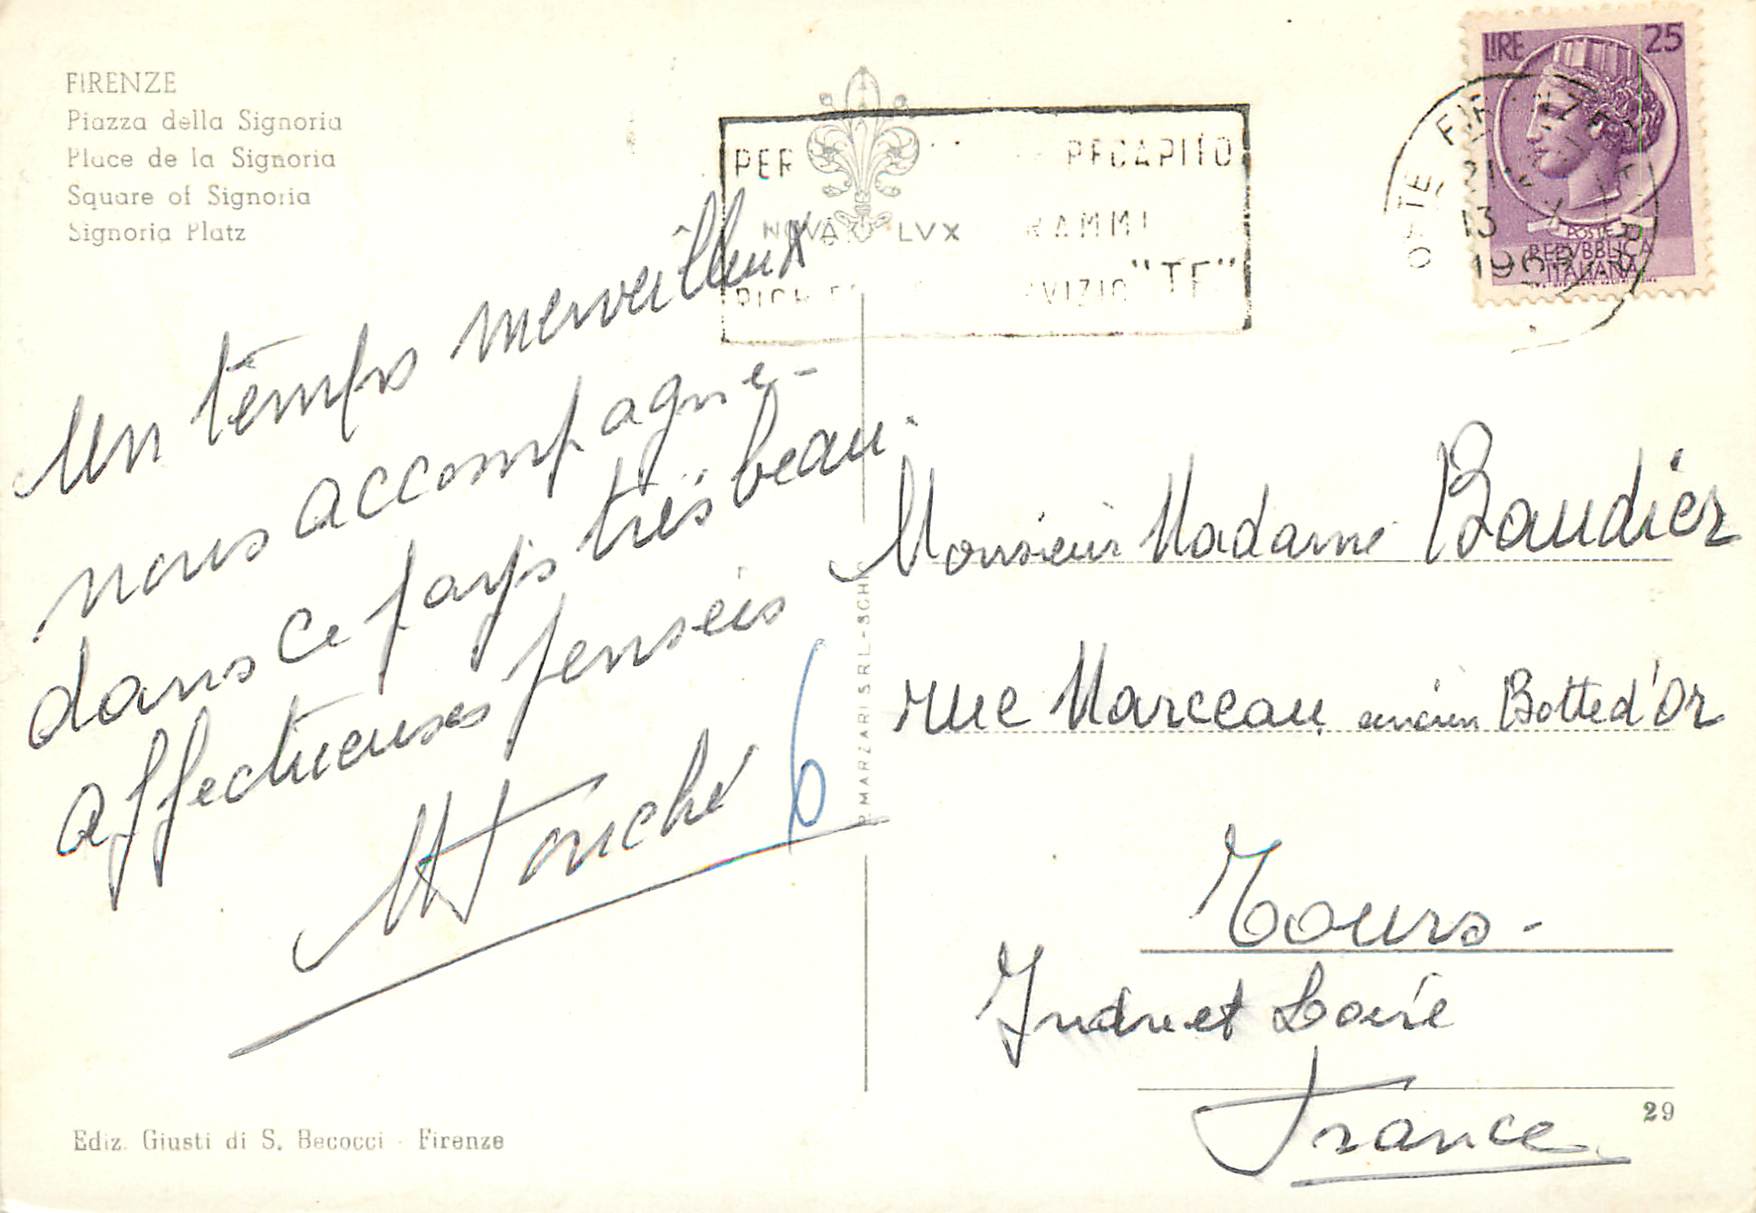 FIRENZE
Piazza della Signoria
Place de la Signoria
Square of Signoria
Signoria Platz
Un temps merveilleux
nous accompagne -
dans ce pays très beau.
affectueuses pensées
M Touché
6
NOVA LVX
PER RECAPITO
RAMMI
"TE"
LIRE 25
POSTE
REPVBBLICA
ITALIANA
13
Monsieur Madame Baudier
rue Marceau ancien Botte d'Or
Tours -
Indre et Loire
France
P. MARZARI S.R.L. - SCHIO
29
Ediz. Giusti di S. Becocci - Firenze